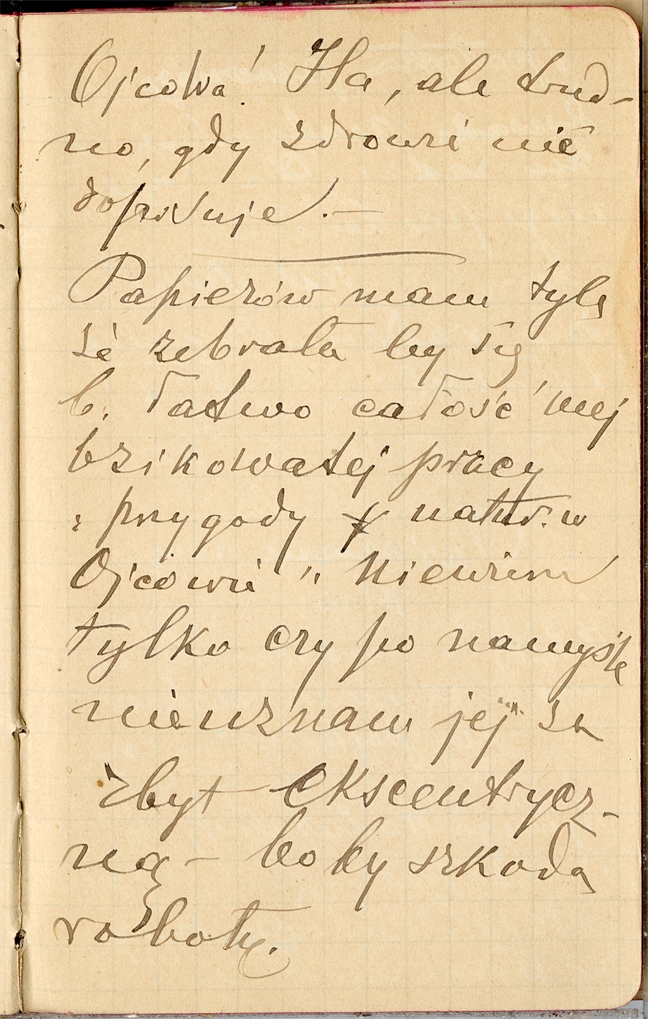 Ojcowa! Ha, ale trud-
no, gdy zdrowie nie
dopisuje. —
Papierów mam tyle
że zebrała by się
b. łatwo całość mej
bzikowatej pracy
przygody natur. w
Ojcowie" Niewiem
tylko czy po namyśle
nieuznam jej za
zbyt ekscentrycz-
ną — bo by szkoda
roboty.